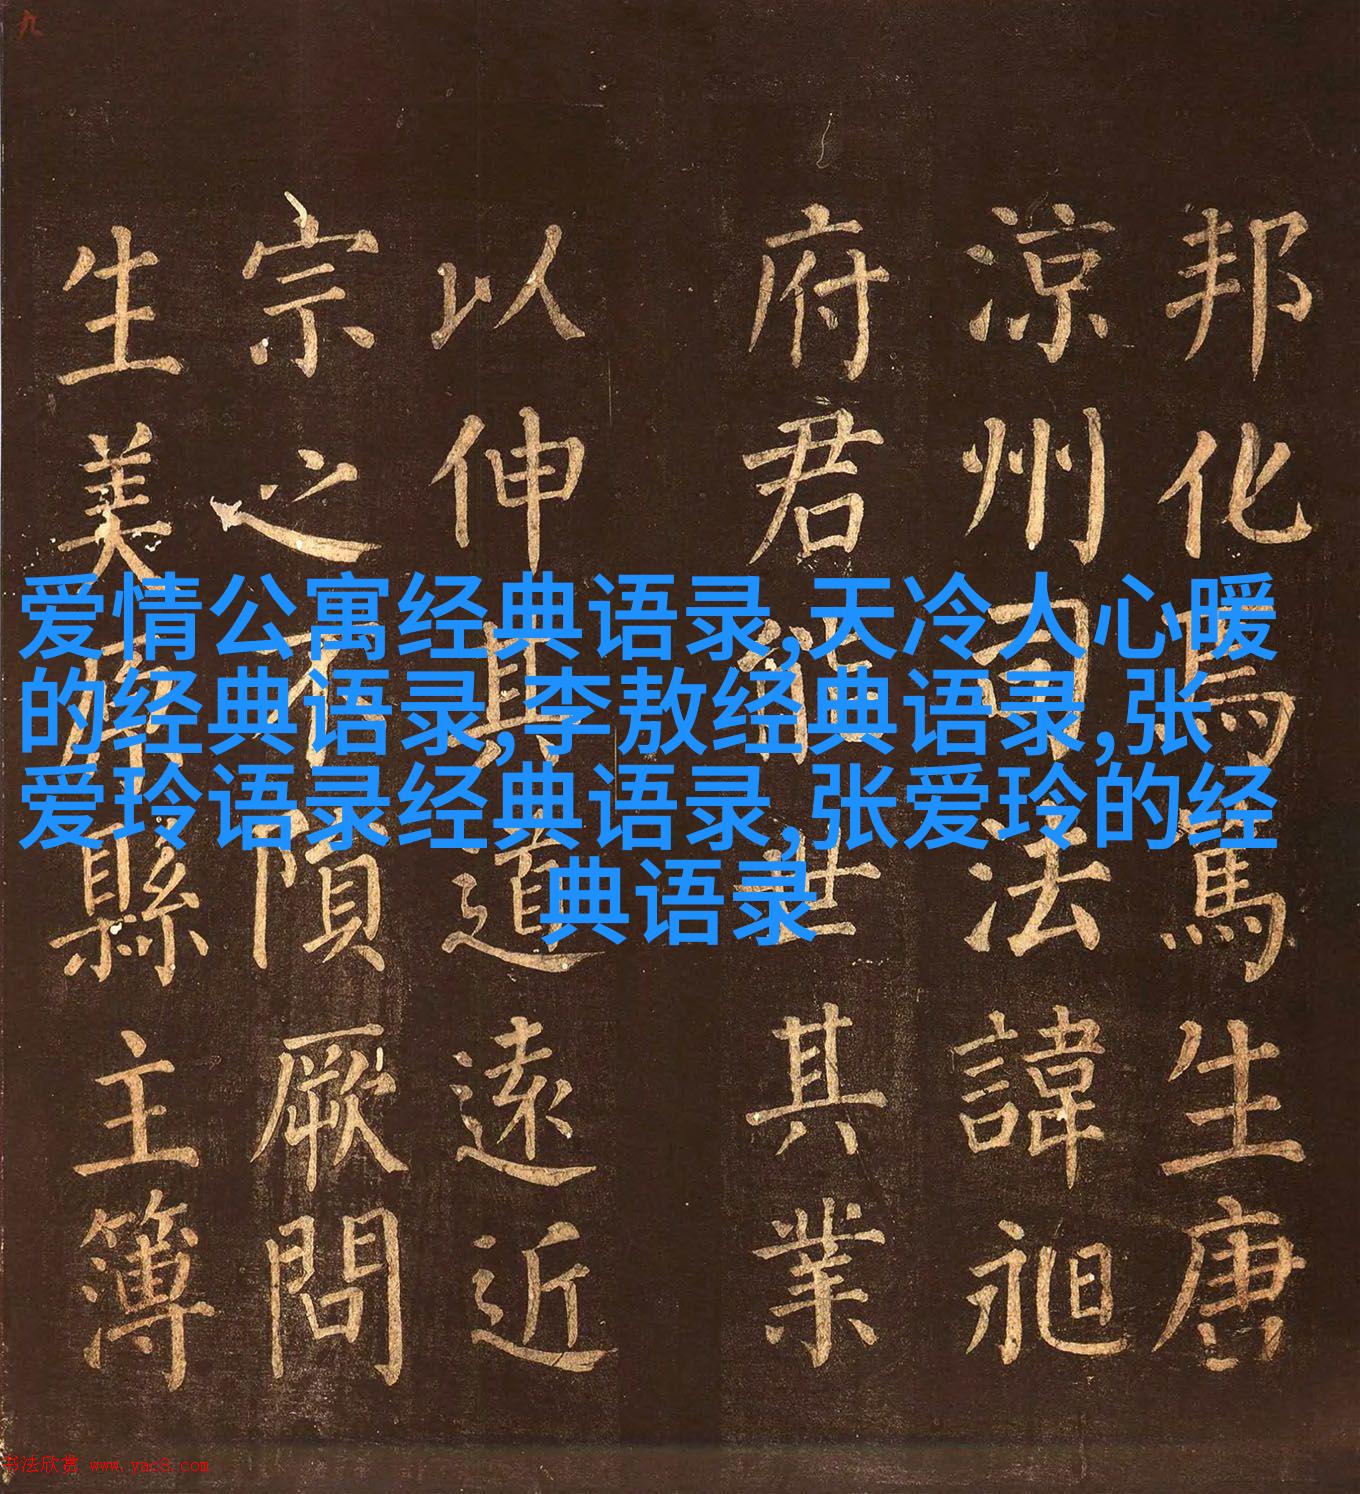 九
邦化焉焉生唐
涼州司法諱昶
府君能世其業
以伸其道遠近
宗之不隕厥問
生美原縣主簿
爱情公寓经典语录,天冷人心暖
的经典语录,李敖经典语录,张
爱玲语录经典语录,张爱玲的经
典语录
书法欣赏 www.yac8.com